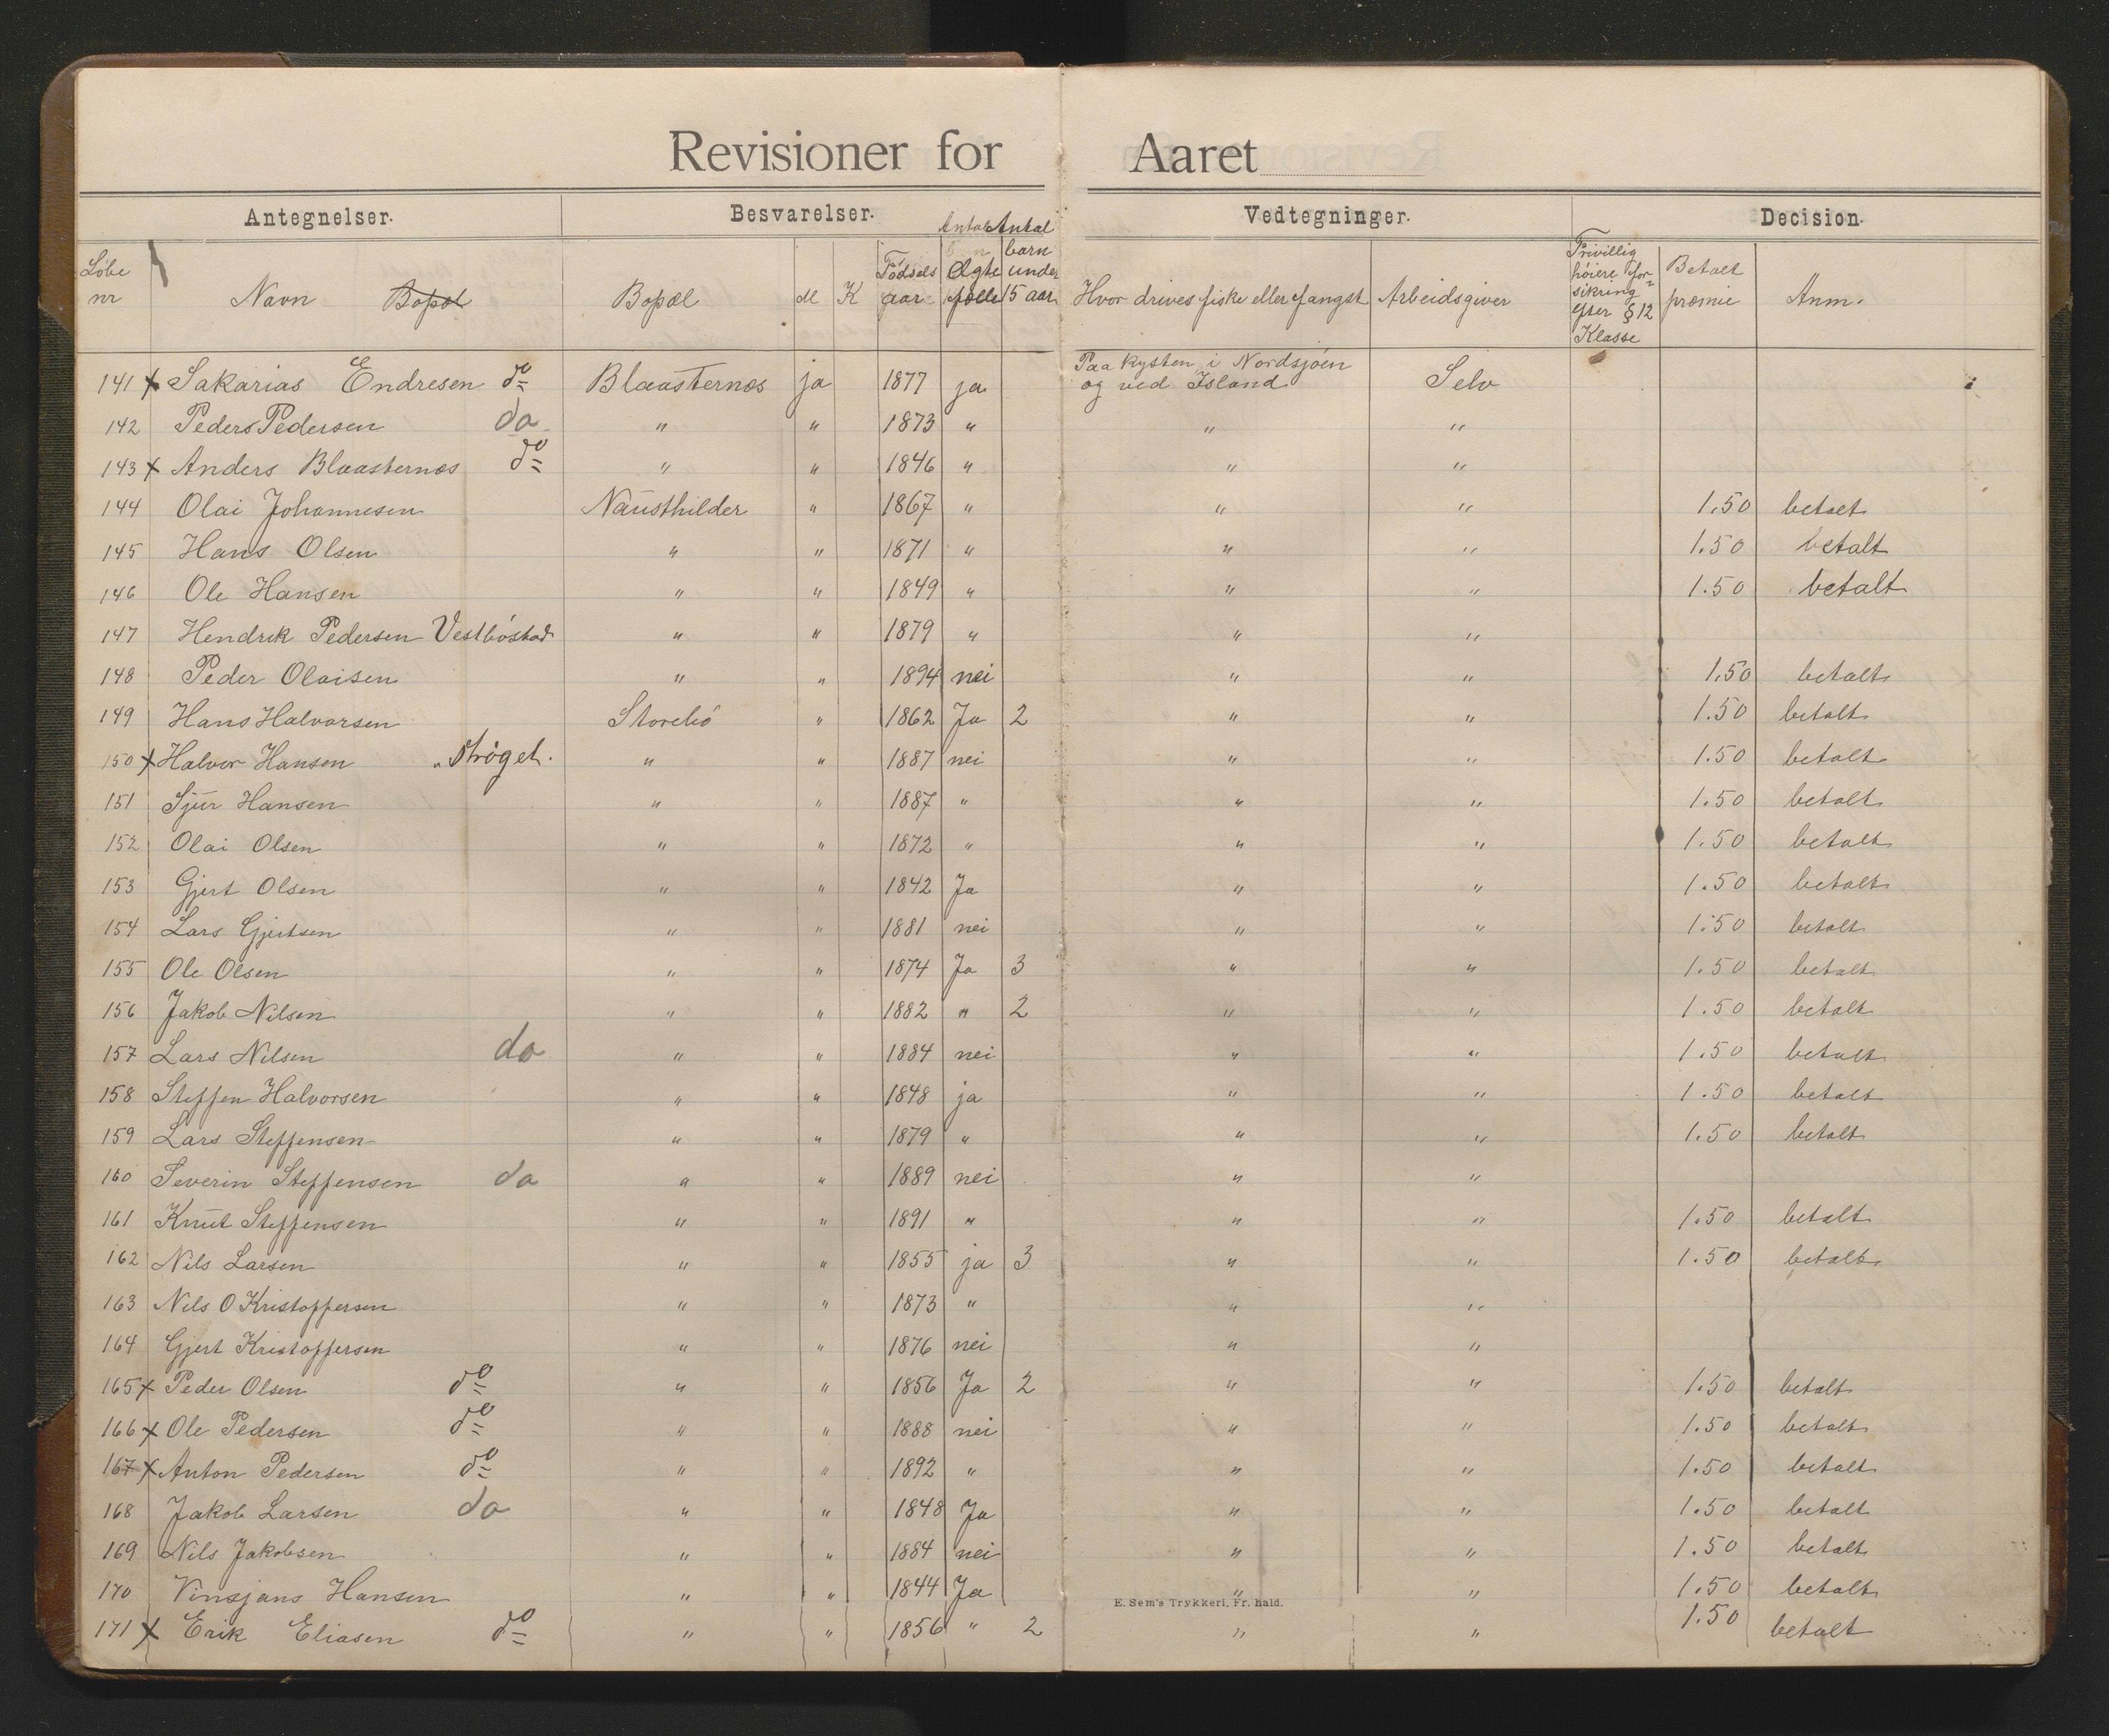 Revisioner for Aaret
Antegnelser. Besvarelser. Vedtegninger. Decision.
Løbe nr Navn Bopæl Bopæl M K Fødsels aar Antal Ægte fælle Antal barn under 15 aar Hvor drives fiske eller fangst Arbeidsgiver Frivillig høiere forsikring efter § 12 Klasse Betalt præmie Anm.
141 x Sakarias Endresen do Blaasternes ja 1877 ja Paa kysten i Nordsjøen og ved Island Selv
142 Peders Pedersen do " " 1873 " " "
143 x Anders Blaasternes do " " 1846 " " "
144 Olai Johannesen Nausthilder " 1867 " " " 1.50 betalt
145 Hans Olsen " " 1871 " " " 1.50 betalt
146 Ole Hansen " " 1849 " " " 1.50 betalt
147 Hendrik Pedersen Vestbøstad " " 1879 " " "
148 Peder Olaisen " " 1894 nei " " 1.50 betalt
149 Hans Halvorsen Storebø " 1862 Ja 2 " " 1.50 betalt
150 x Halvor Hansen " strøget. " " 1887 nei " " 1.50 betalt
151 Sjur Hansen " " 1887 " " " 1.50 betalt
152 Olai Olsen " " 1872 " " " 1.50 betalt
153 Gjert Olsen " " 1842 Ja " " 1.50 betalt
154 Lars Gjertsen " " 1881 nei " " 1.50 betalt
155 Ole Olsen " " 1874 Ja 3 " " 1.50 betalt
156 Jakob Nilsen " " 1882 " 2 " " 1.50 betalt
157 Lars Nilsen do " " 1884 nei " " 1.50 betalt
158 Steffen Halvorsen " " 1848 ja " " 1.50 betalt
159 Lars Steffensen " " 1879 " " " 1.50 betalt
160 Severin Steffensen do " " 1889 nei " "
161 Knut Steffensen " " 1891 " " " 1.50 betalt
162 Nils Larsen " " 1855 ja 3 " " 1.50 betalt
163 Nils O Kristoffersen " " 1873 " " "
164 Gjert Kristoffersen " " 1876 nei " "
165 x Peder Olsen do " " 1856 Ja 2 " " 1.50 betalt
166 x Ole Pedersen do " " 1888 nei " " 1.50 betalt
167 x Anton Pedersen do " " 1892 " " " 1.50 betalt
168 Jakob Larsen do " " 1848 Ja " " 1.50 betalt
169 Nils Jakobsen " " 1884 nei " " 1.50 betalt
170 Vinsjans Hansen " " 1844 Ja " " 1.50 betalt
E. Sem's Trykkeri, Fr. hald.
171 x Erik Eliasen do " " 1856 " 2 " " 1.50 betalt